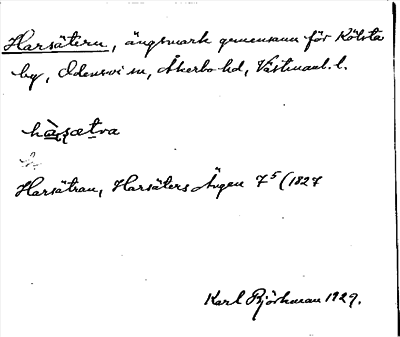 Harsätern, ängsmark gemensam för Kölsta
by, Odensvi sn, Åkerbo hd, Västmanl. l.
hàsætva
Harsätran, Harsäters Ängen 7⁵ (1827
Karl Björkman 1929.